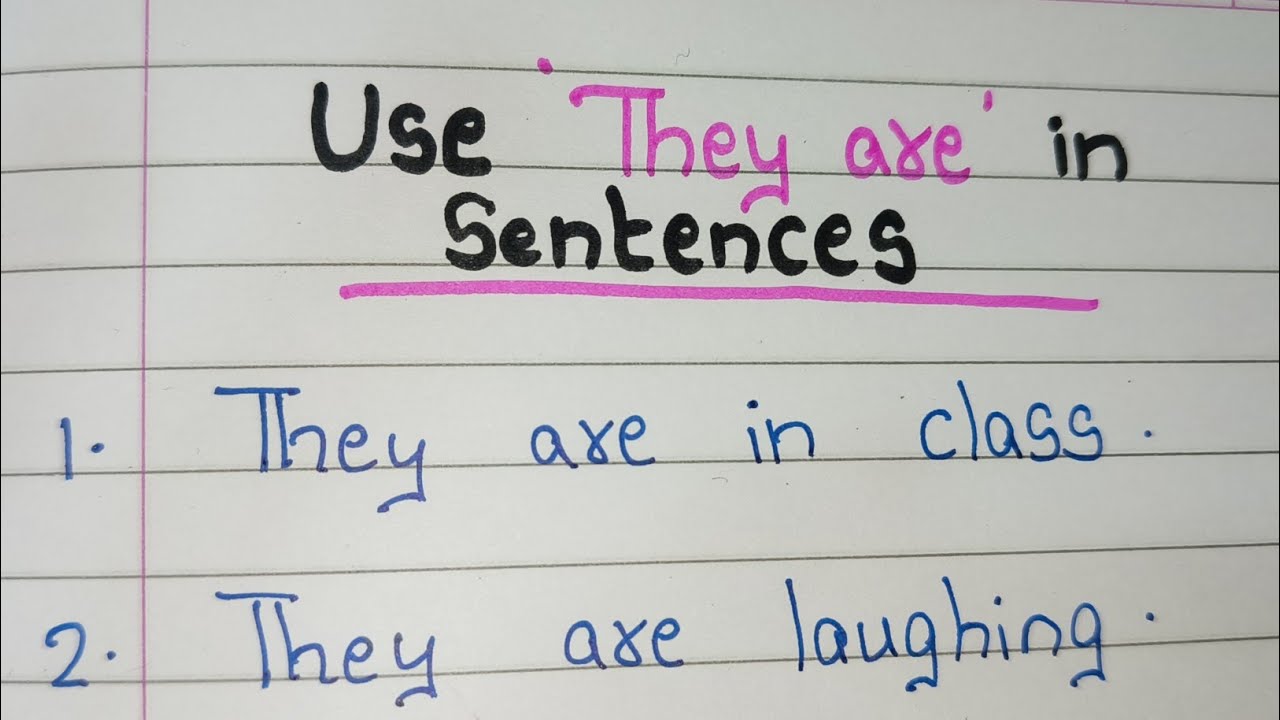 Use 'They are' in
Sentences
1. They are in class.
2. They are laughing.